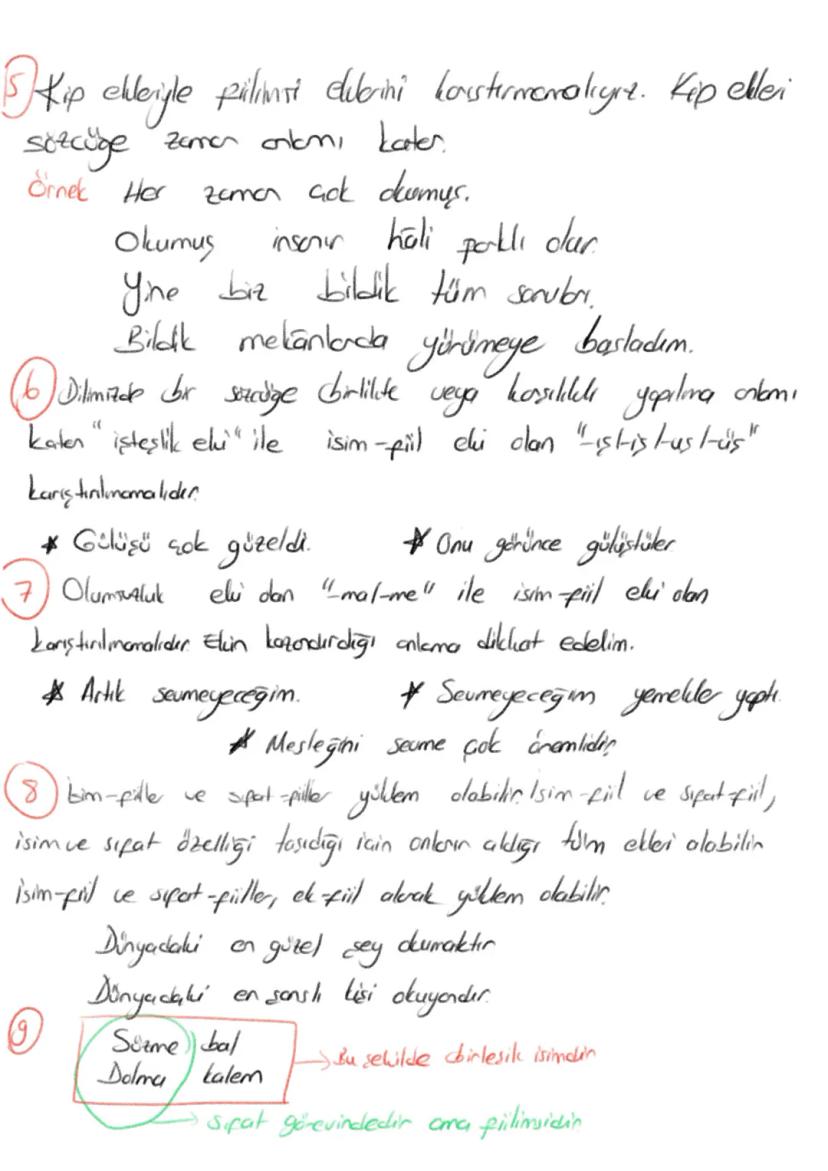 5 Kip ekleriyle fiilimsi eklerini karıştırmamalıyız. Kip ekleri
sözcüğe zaman anlamı katar.
Örnek Her zaman çok okumuş.
Okumuş insanın hâli farklı olur.
Yine biz bildik tüm soruları.
Bildik mekânlarda yürümeye başladım.
6 Dilimizde bir sözcüğe birlikte veya karşılıklı yapılma anlamı
katan "işteşlik eki" ile isim-fiil eki olan "-ış/-iş/-uş/-üş"
karıştırılmamalıdır.
* Gülüşü çok güzeldi. * Onu görünce gülüştüler.
7 Olumsuzluk eki olan "-ma/-me" ile isim-fiil eki olan
karıştırılmamalıdır. Ekin kazandırdığı anlama dikkat edelim.
* Artık sevmeyeceğim. * Sevmeyeceğim yemekler yaptı.
* Mesleğini sevme çok önemlidir.
8 İsim-fiiller ve sıfat-fiiller yüklem olabilir. İsim-fiil ve sıfat-fiil,
isim ve sıfat özelliği taşıdığı için onların aldığı tüm ekleri alabilir.
İsim-fiil ve sıfat-fiiller, ek-fiil alarak yüklem olabilir.
Dünyadaki en güzel şey okumaktır.
Dünyadaki en şanslı kişi okuyandır.
9 Süzme bal
Dolma kalem
→ Bu şekilde birleşik isimdir
→ sıfat görevindedir ama fiilimsidir